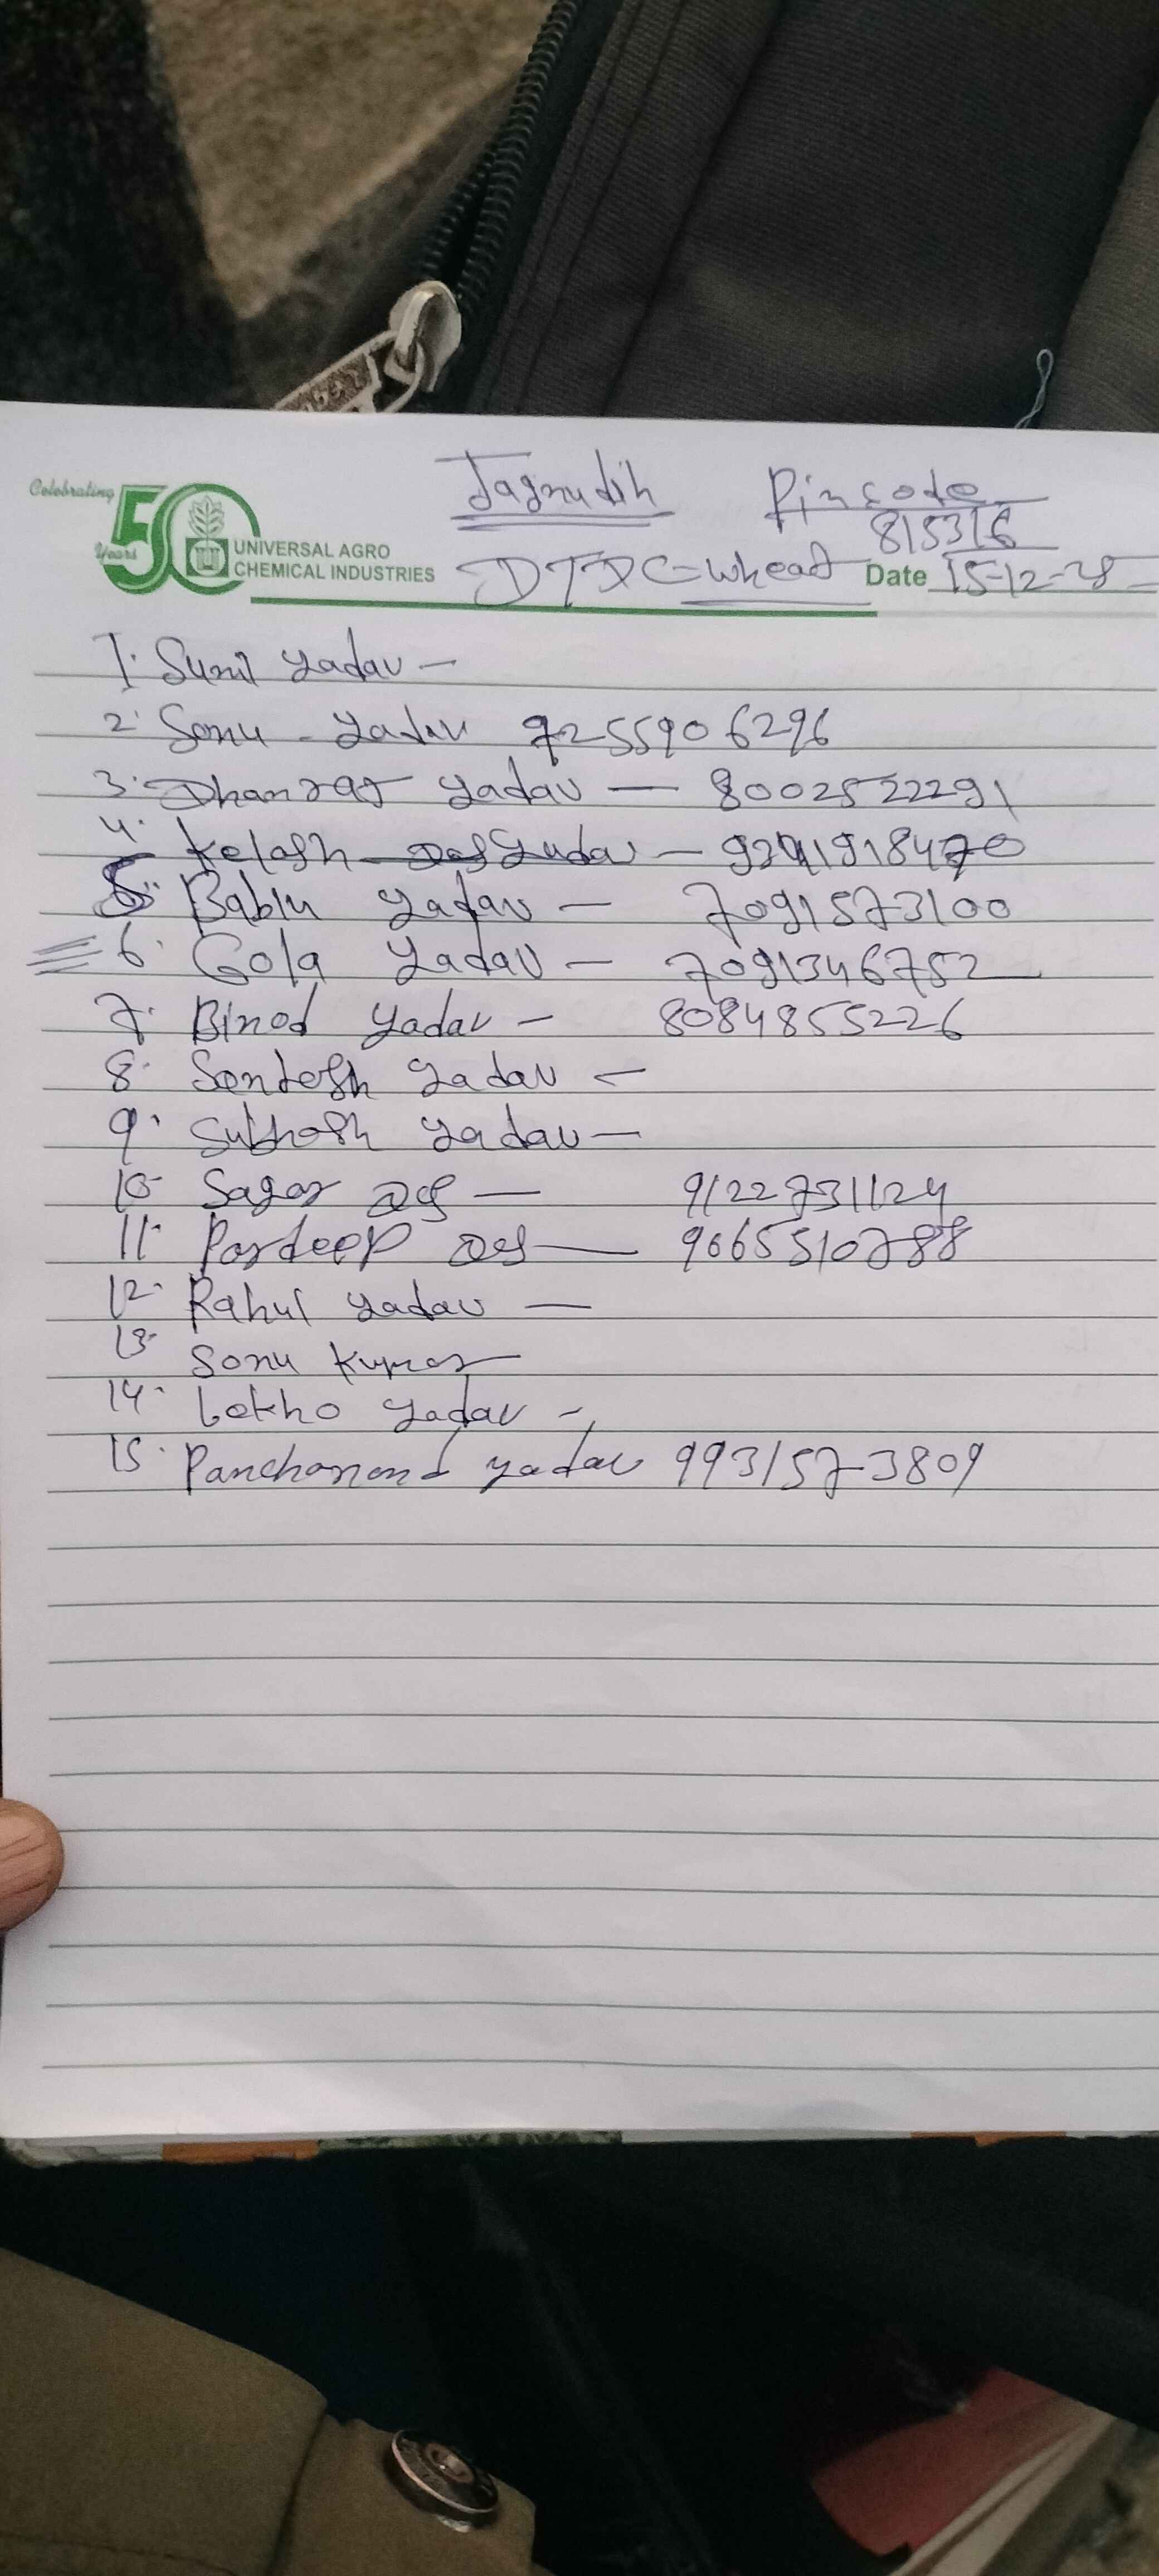 Jagrudih Pincode
815316
Celebrating 50 Years
UNIVERSAL AGRO
CHEMICAL INDUSTRIES
DTDC-Wheat Date 15-12-25
1. Sunil yadav -
2. Sonu - yadav 7255906296
3. Dhanraj yadav - 8002522291
4. Kelash yadav - 9241918470
5. Bablu yadav - 7091573100
6. Gola yadav - 7091346752
7. Binod yadav - 8084855226
8. Santosh yadav -
9. Subhash yadav -
10. Sagar das - 9122731124
11. Pardeep das - 9065510788
12. Rahul yadav -
13. Sonu Kumar
14. Lekho yadav -
15. Panchanand yadav 9931573809